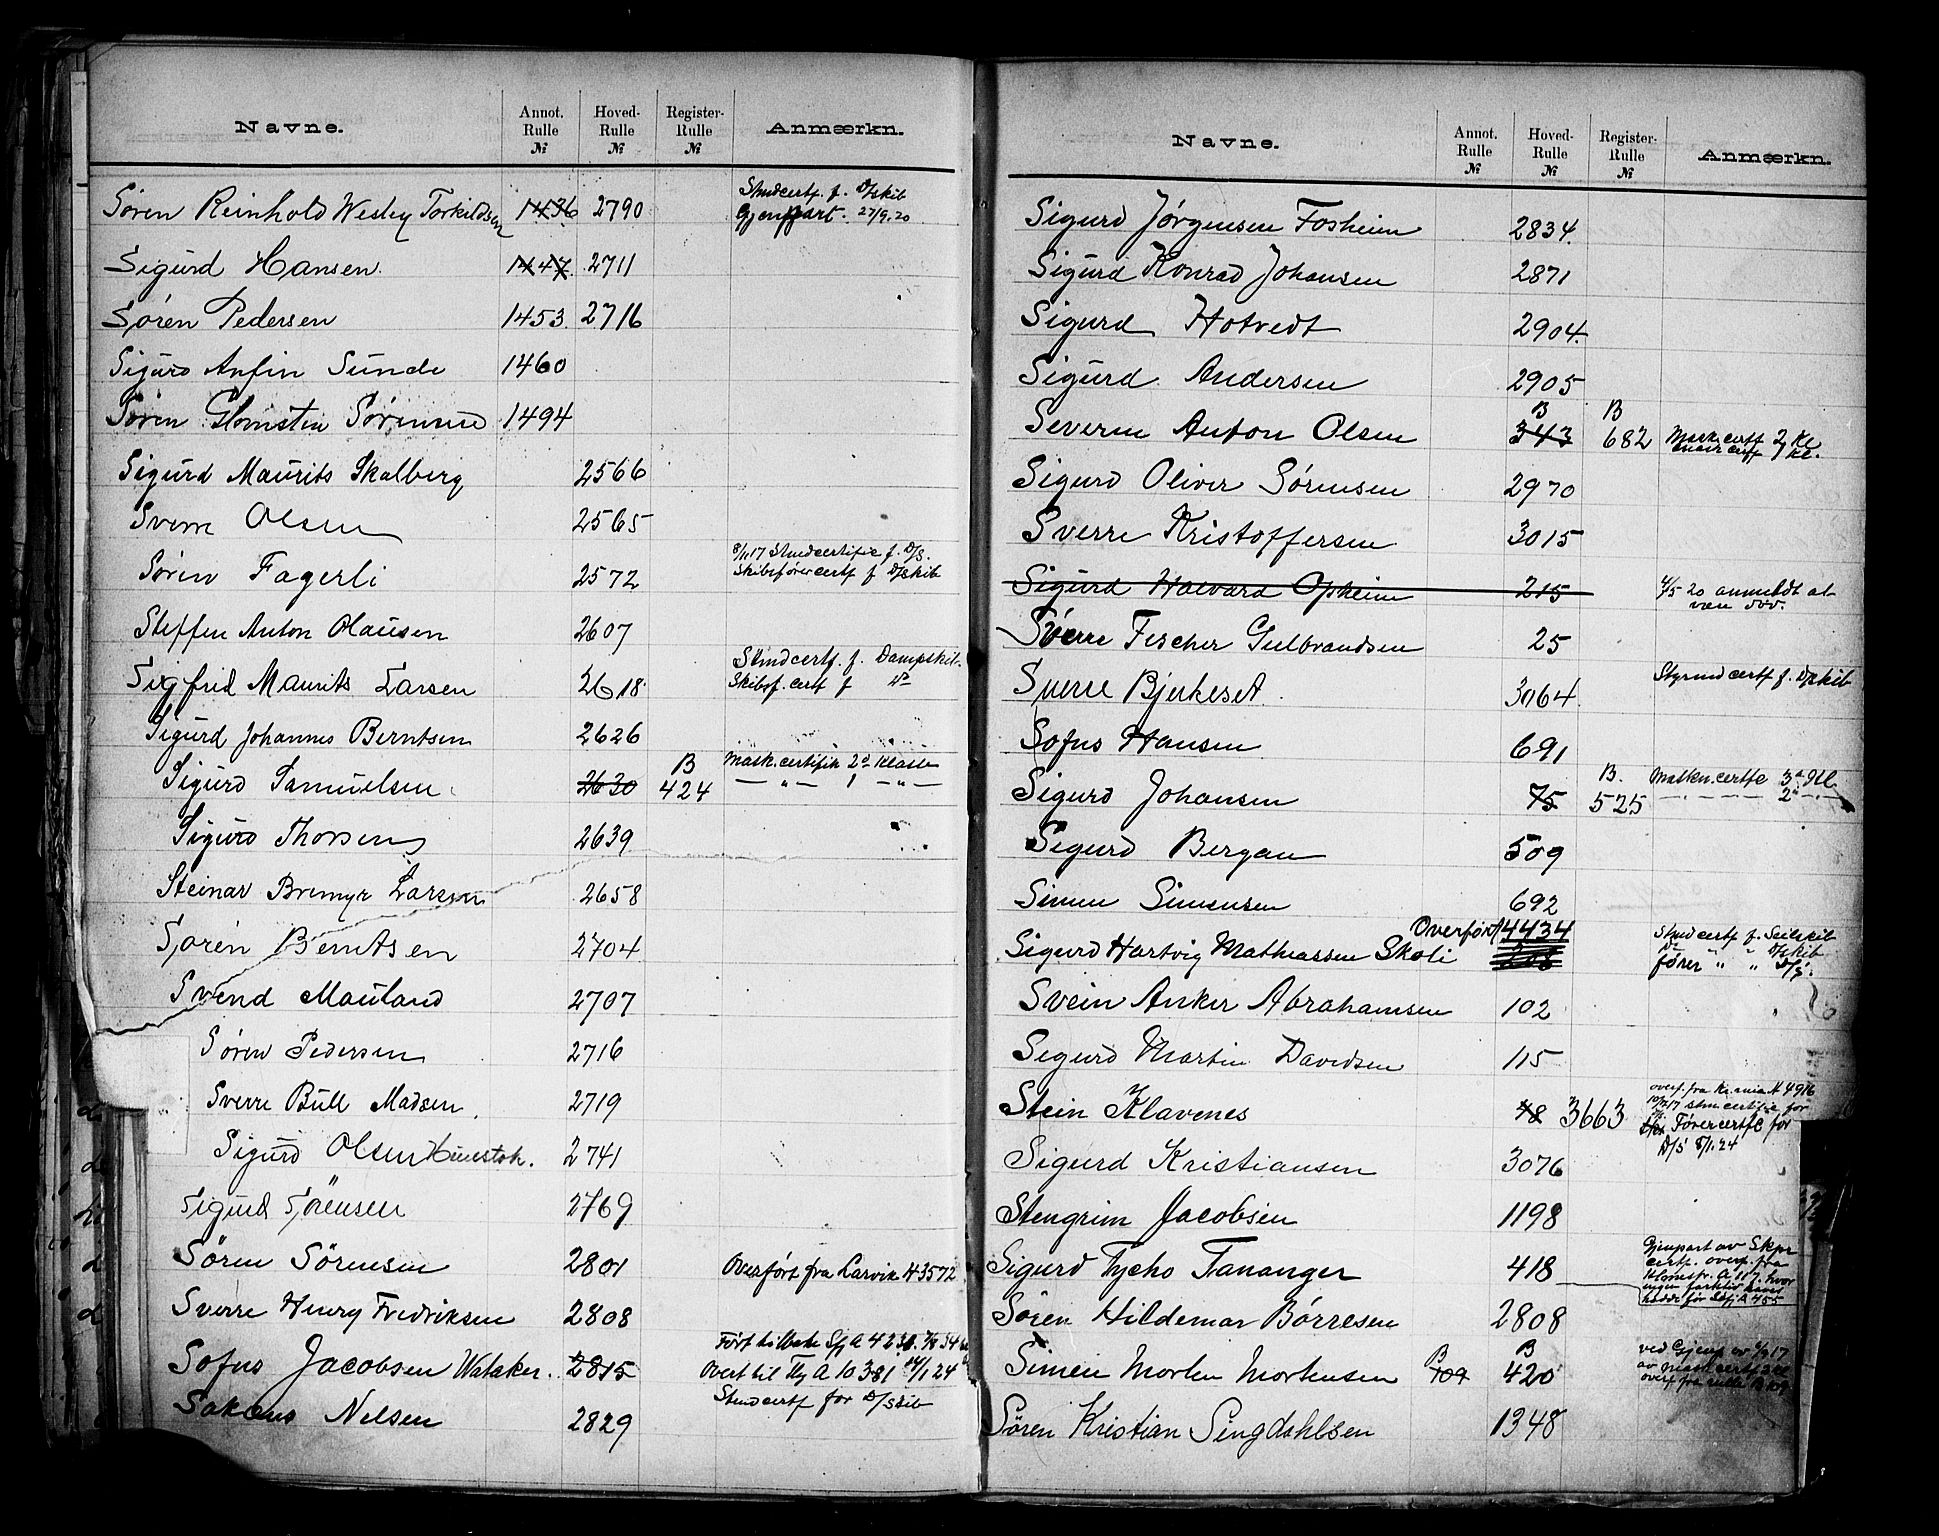 Navne. Annot. Rulle № Hoved- Rulle № Register- Rulle № Anmærkn.
Søren Reinhold Wesley Torkildsen 1436 2790 Stmdcertf. f. D/skib
Gjenpart. 27/9.20
Sigurd Hansen 1447 2711
Søren Pedersen 1453 2716
Sigurd Anfin Sunde 1460
Søren Sørensen 1494
Sigurd Maurits Skalberg 2566
Sverre Olsen 2565
Søren Fagerli 2572 8/1.17 Stmdcertific f. D/S.
Skibsførercertf f D/skib
Steffen Anton Olausen 2607
Sigfred Maurits Larsen 2618 Stmdcertf. f. Dampskib.
Skibsf. certf f do
Sigurd Johannes Berntsen 2626
Sigurd Samuelsen 2630 B 424 Mask.certifik 2den Klasse
— „ — 1 — „ —
Sigurd Thorsen 2639
Steinar Bremyr Larsen 2658
Søren Berntsen 2704
Svend Mauland 2707
Søren Pedersen 2716
Sverre Bull Madsen. 2719
Sigurd Olsen 2741
Sigurd Sørensen 2769
Søren Sörensen 2801 Overført fra Larvik A 3572
Sverre Henry Fredriksen 2808
Sofus Jacobsen Wataker. 2815 Ført tilbake Sfj A 4231.
Overf til Tbg A 10381 14/1 24
Sakæus Nelsen 2829 Stmdcertf for D/skib
Navne. Annot. Rulle № Hoved- Rulle № Register- Rulle № Anmærkn.
Sigurd Jørgensen Fosheim 2834.
Sigurd Konrad Johansen 2871
Sigurd Hotvedt 2904.
Sigurd Andersen 2905
Severin Anton Olsen B 343 B 682 Mask.certf 2 Kl
Mask certf 1 Kl.
Sigurd Oliver Sørensen 2970
Sverre Kristoffersen 3015
Sigurd Halvard Opheim 215 4/5 20 anmeldt at
være død.
Sverre Fischer Gulbrandsen 25
Sverre Bjerkeset. 3064 Styrmdcertf f. D/skib
Sofus Hansen 691
Sigurd Johansen 75 B. 525 Maskn.certfc 3die Kl
— „ — „ — 2 „ —
Sigurd Bergan 509
Simen Simensen 692
Sigurd Hartvig Mathiassen Skoli Overført 4434 Stmdcertf f. Seilskib
„ „ D/skib
fører „ „ D/S.
Svein Anker Abrahamsen 102
Sigurd Martin Davidsen 115
Stein Klavenes 48 3663 overf. fra Kr.ania A 4916
stm certific for
Førercertfc for
D/S 8/1.24
Sigurd Kristiansen 3076
Stengrim Jacobsen 1198
Sigurd Tycho Tananger 418 Gjenpart av Skpr
certf. overf. fra
Søren Hildemar Børresen 2808
Simen Morten Mortensen B 109 B 420 ved Gjenp av
av Mask certf 3 Kl
overf fra rulle B 109
Søren Kristian Singdahlsen 1348